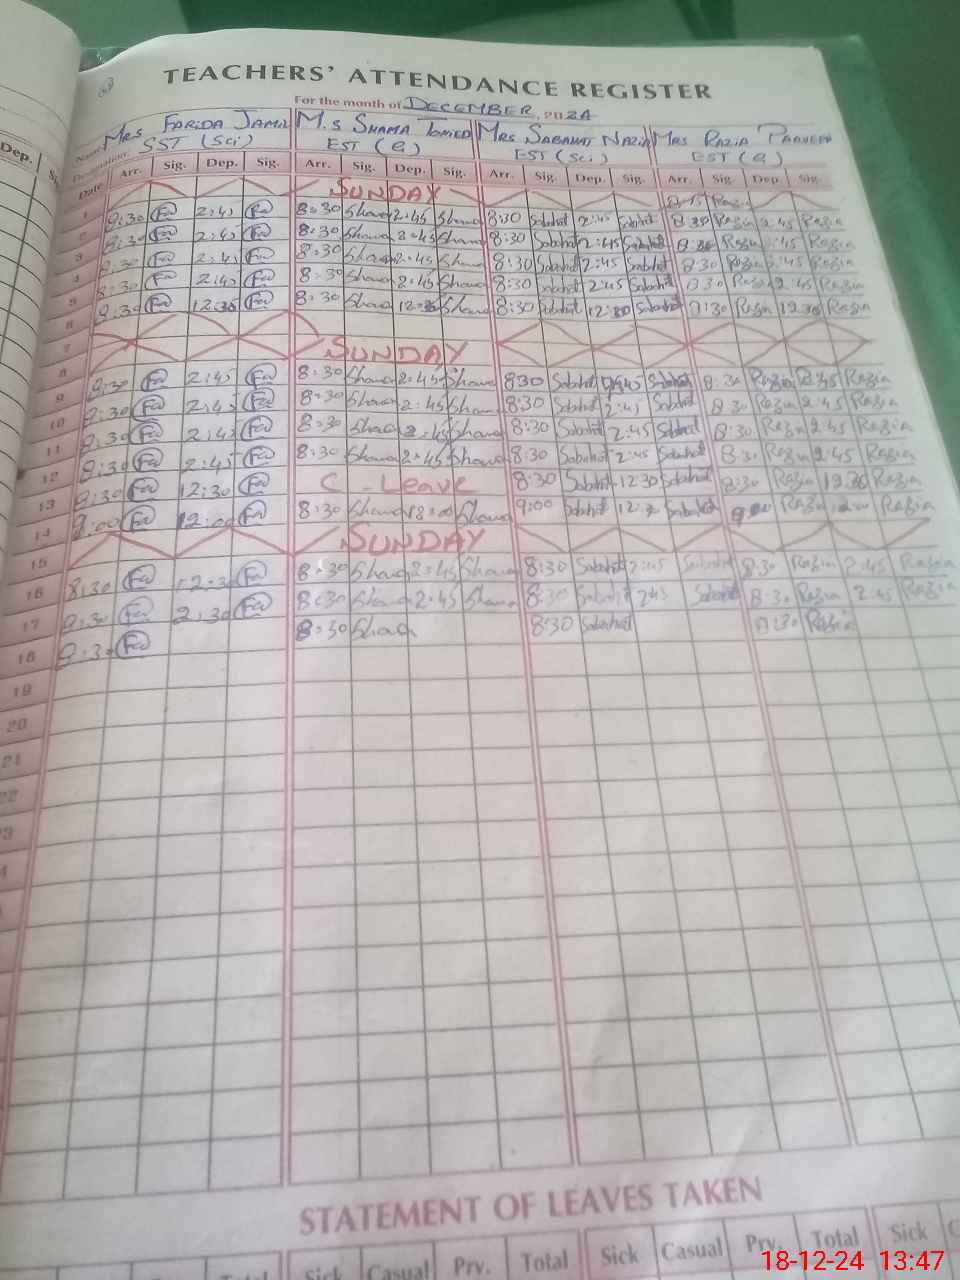 TEACHERS' ATTENDANCE REGISTER
For the month of DECEMBER, 2024
Mrs FARIDA JAMIL M.S SHAMA Mrs SABAHAT NAZIR Mrs RAZIA PARVEEN
SST (Sci) EST (e) EST (Sci) EST (e)
Dep.
Date Arr. Sig. Dep. Sig. Arr. Sig. Dep. Sig. Arr. Sig. Dep. Sig. Arr. Sig. Dep. Sig.
1 SUNDAY
2 8:30 2:45 8:30 Shama 2:45 Shama 8:30 Sabahat 2:45 Sabahat 8:30 Razia 2:45 Razia
3 8:30 2:45 8:30 Shama 2:45 Shama 8:30 Sabahat 2:45 Sabahat 8:30 Razia 2:45 Razia
4 8:30 2:45 8:30 Shama 2:45 Shama 8:30 Sabahat 2:45 Sabahat 8:30 Razia 2:45 Razia
5 8:30 2:45 8:30 Shama 2:45 Shama 8:30 Sabahat 2:45 Sabahat 8:30 Razia 2:45 Razia
6 8:30 12:30 8:30 Shama 12:30 Shama 8:30 Sabahat 12:30 Sabahat 8:30 Razia 12:30 Razia
7
8 SUNDAY
9 8:30 2:45 8:30 Shama 2:45 Shama 8:30 Sabahat Sabahat 8:30 Razia 2:45 Razia
10 8:30 2:45 8:30 Shama 2:45 Shama 8:30 Sabahat 2:45 Sabahat 8:30 Razia 2:45 Razia
11 8:30 2:45 8:30 Shama 2:45 Shama 8:30 Sabahat 2:45 Sabahat 8:30 Razia 2:45 Razia
12 8:30 2:45 8:30 Shama 2:45 Shama 8:30 Sabahat 2:45 Sabahat 8:30 Razia 2:45 Razia
13 8:30 12:30 C-Leave 8:30 Sabahat 12:30 Sabahat 8:30 Razia 12:30 Razia
14 9:00 12:00 8:30 Shama Shama 9:00 Sabahat Sabahat 9:00 Razia Razia
15 SUNDAY
16 8:30 12:30 8:30 Shama 2:45 Shama 8:30 Sabahat 2:45 Sabahat 8:30 Razia 2:45 Razia
17 8:30 2:30 8:30 Shama 2:45 Shama 8:30 Sabahat 2:45 Sabahat 8:30 Razia 2:45 Razia
18 8:30 8:30 Shama 8:30 Sabahat 8:30 Razia
19
20
21
22
STATEMENT OF LEAVES TAKEN
Total Sick Casual Prv. Total Sick Casual Prv. Total Sick
18-12-24 13:47